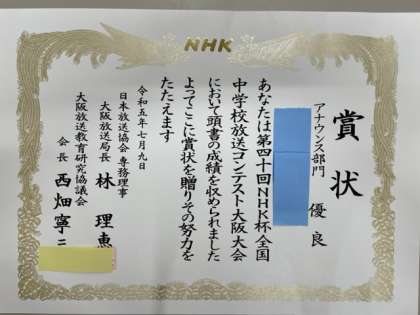 NHK
賞状
アナウンス部門
優良
あなたは第四十回NHK杯全国
中学校放送コンテスト大阪大会
において頭書の成績を収められました
よってここに賞状を贈りその努力を
たたえます
令和五年七月九日
日本放送協会 専務理事
大阪放送局長 林 理恵
大阪放送教育研究協議会
会長 西畑 寧